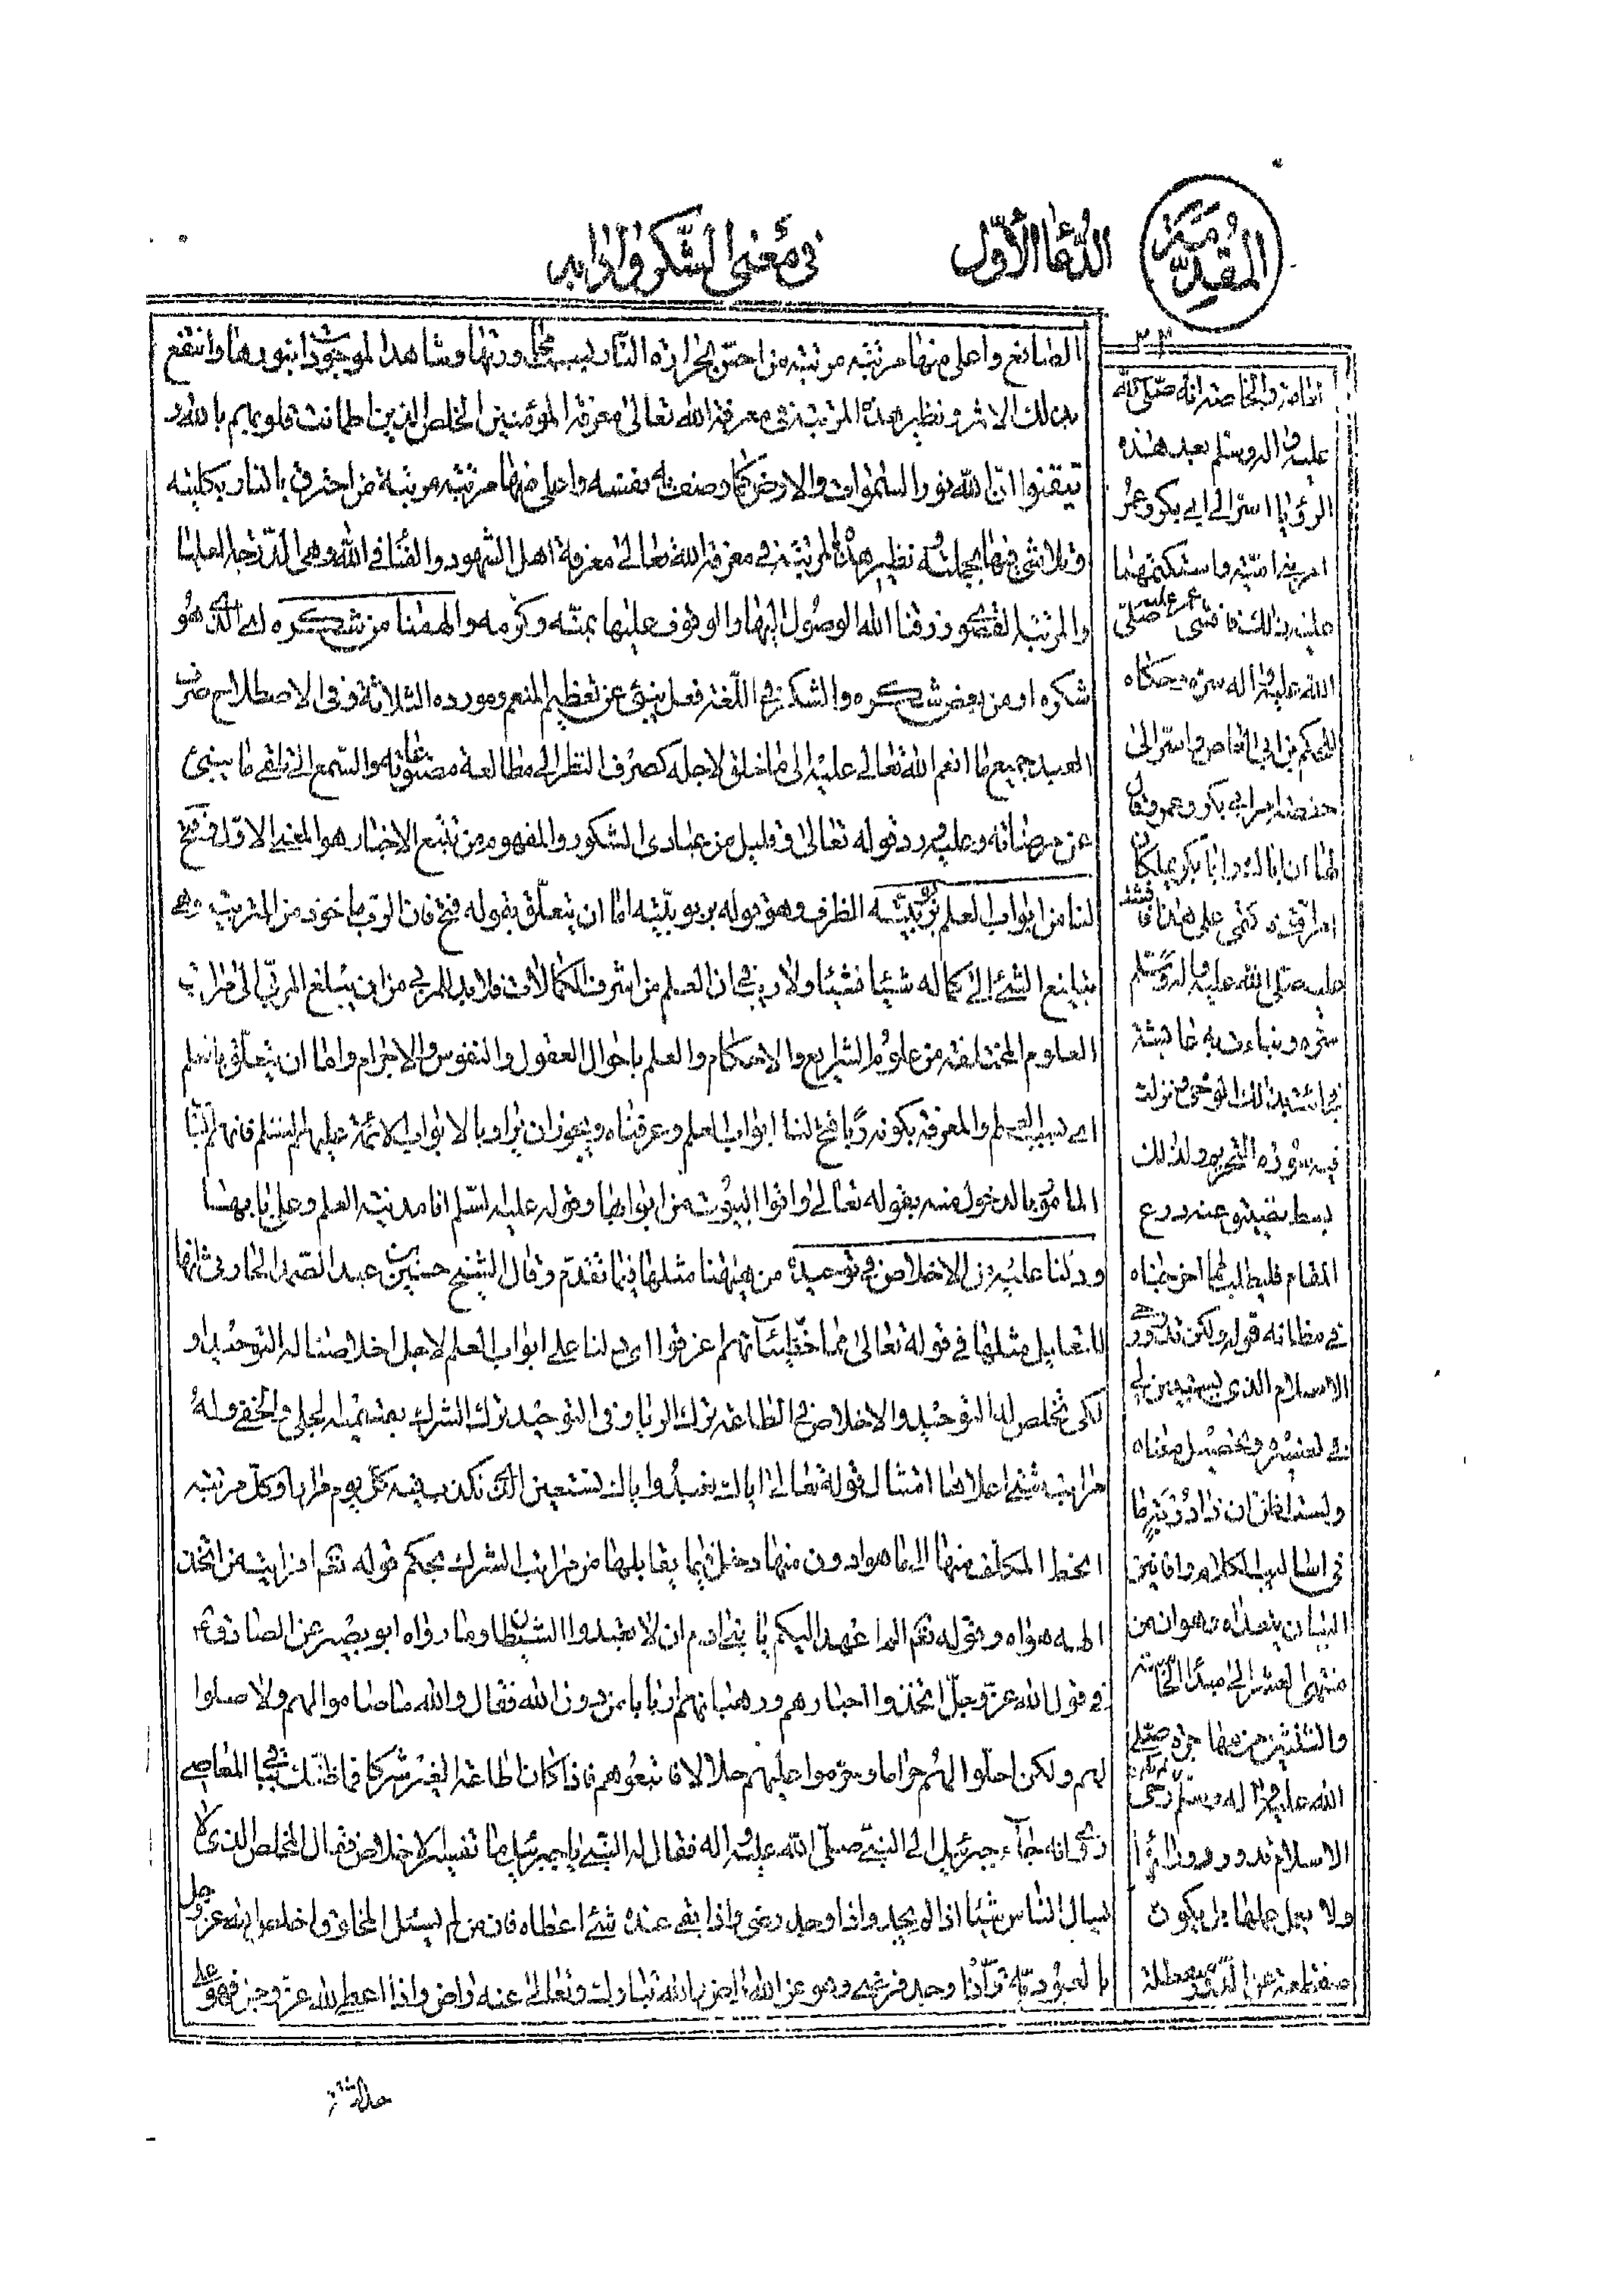 المقدمة
الدعاء الأول
في معنى الشكر وادابه
٣٢
الصانع واعلى منها مرتبة مرتبة من احس بحرارة النار بسبب مجاورتها وشاهد الموجودات بنورها وانتفع
بذلك الاثر ونظير هذه المرتبة في معرفة الله تعالى معرفة المؤمنين الخلص الذين اطمانت قلوبهم بالله و
تيقنوا ان الله نور السموات والارض كما وصف به نفسه واعلى منها مرتبة مرتبة من احترق بالنار بكليته
وتلاشى فيها بجملته نظير هذه المرتبة في معرفة الله تعالى معرفة اهل الشهود والفناء في الله وهي الدرجة العليا
والمرتبة القصوى رزقنا الله الوصول اليها والوقوف عليها بمنه وكرمه والهمنا من شكره اى الذي هو
شكره او من بعض شكره والشكر في اللغة فعل ينبئ عن تعظيم المنعم ومورده الثلاثة وفي الاصطلاح صرف
العبد جميع ما انعم الله تعالى عليه الى ما خلق لاجله كصرف النظر الى مطالعة مصنوعاته والسمع الى تلقى ما ينبئ
عن مرضاته وعليه ورد قوله تعالى وقليل من عبادى الشكور والمفهوم من تتبع الاخبار هو المعنى الاول وفتح
لنا من ابواب العلم بربوبيته الظرف وهو قوله بربوبيته اما ان يتعلق بقوله فتح فان الرب ماخوذ من التربية وهي
تبليغ الشئ الى كماله شيئا فشيئا ولا ريب ان العلم من اشرف الكمالات فلا بد للمربي من ان يبلغ المربى الى مراتب
العلوم المختلفة من علوم الشرايع والاحكام والعلم باحوال العقول والنفوس والاجرام واما ان يتعلق بالعلم
اى بسبب العلم والمعرفة بكونه ربا فتح لنا ابواب العلم وعرفناه ويجوز ان يراد بالابواب الائمة عليهم السلم فانهم الباب
المامور بالدخول منه بقوله تعالى واتوا البيوت من ابوابها وقوله عليه السلم انا مدينة العلم وعلي بابها
ودلنا عليه من الاخلاص في توحيده من هيهنا مثلها فيما تقدم وقال الشيخ حسين بن عبد الصمد الحارثي انها
للتعليل مثلها في قوله تعالى مما خطيئاتهم اغرقوا اى دلنا على ابواب العلم لاجل اخلاصنا له التوحيد او
لكى نخلص له التوحيد والاخلاص في الطاعة ترك الريا وفى التوحيد ترك الشرك بقسميه الجلى والخفي وله
مراتب شتى اعلاها امتثال قوله تعالى اياك نعبد واياك نستعين الذى نكذب فيه كل يوم مرارا وكل مرتبة
انحط المكلف منها الى ما هو ادون منها دخل فيما يقابلها من مراتب الشرك بحكم قوله تعم افرايت من اتخذ
الهه هواه وقوله تعم الم اعهد اليكم يا بني ادم ان لا تعبدوا الشيطان وما رواه ابو بصير عن الصادق ع
في قول الله عز وجل اتخذوا احبارهم ورهبانهم اربابا من دون الله فقال والله ما صاموا لهم ولا صلوا
لهم ولكن احلوا لهم حراما وحرموا عليهم حلالا فاتبعوهم فاذا كان اطاعة الغير شركا فما ظنك بالمعاصى
روى انه جاء جبرئيل الى النبي صلى الله عليه واله فقال له النبي يا جبرئيل ما تفسير الاخلاص فقال المخلص الذى لا
يسال الناس شيئا اذا لم يجد واذا وجد رضى واذا بقى عنده شئ اعطاه فان من لم يسئل المخلوق واخلص لله عز وجل
بالعبودية واذا وجد فرضى وهو عن الله راض والله تبارك وتعالى عنه راض واذا اعطى لله عز وجل فهو على
العامة والخاصة انه صلى الله
عليه واله وسلم بعد هذه
الرؤيا اسر الى ابي بكر وعمر
امر بني امية واستكتمهما
عليه ذلك فافشى عمر عليه صلى
الله عليه واله سره وحكاه
للحكم بن ابي العاص واسر الى
حفصة امر ابي بكر وعمر وقال
لها ان اباك وابا بكر يملكان
امر امتى فاكتمى على هذا فافشت
عليه صلى الله عليه واله وسلم
سره ونبات به عايشة
في ذلك الوحى ونزلت
فيه سورة التحريم ولذلك
بسط يضيق عنه وسع
المقام فليطلب مما احرجناه
في مظانه قوله ولكن تدور رحى
الاسلام الذى يستبين لى
في تفسيره وتحصيل معناه
في اساليب الكلام وافانين
البيان يتعداه هو ان من
منتهى العشر الى مبدا الخامسة
والثلثين من مهاجره صلى
الله عليه واله وسلم رحى
الاسلام تدور دورانها
ولا يعمل عملها بل يكون
منقطعة عن الدور معطلة
حال ثقة